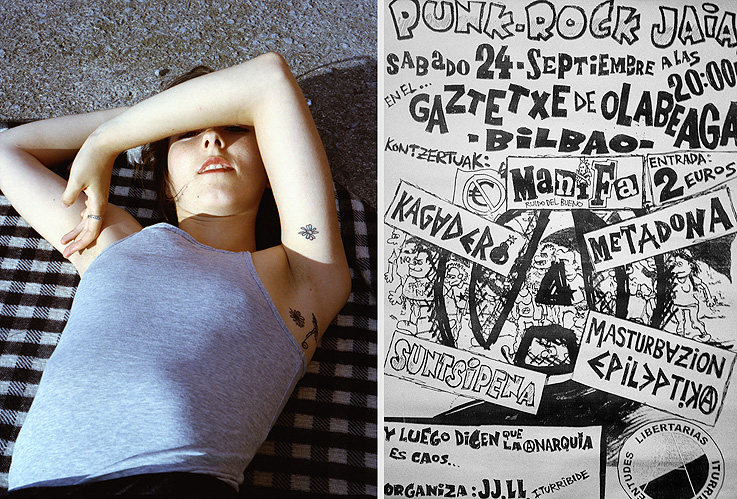 PUNK-ROCK JAIA
SABADO 24-SEPTIEMBRE A LAS
20:00
EN EL...
GAZTETXE DE OLABEAGA
-BILBAO-
KONTZERTUAK:
MANIFA
RUIDO DEL BUENO
ENTRADA:
2 EUROS
KAGADERO
METADONA
NO SE
SUNTSIPENA
MASTURBAZION
EPILEPTIKA
Y LUEGO DICEN QUE
LA ANARQUIA
ES CAOS...
ORGANIZA: JJ.LL ITURRIBIDE
LIBERTARIAS